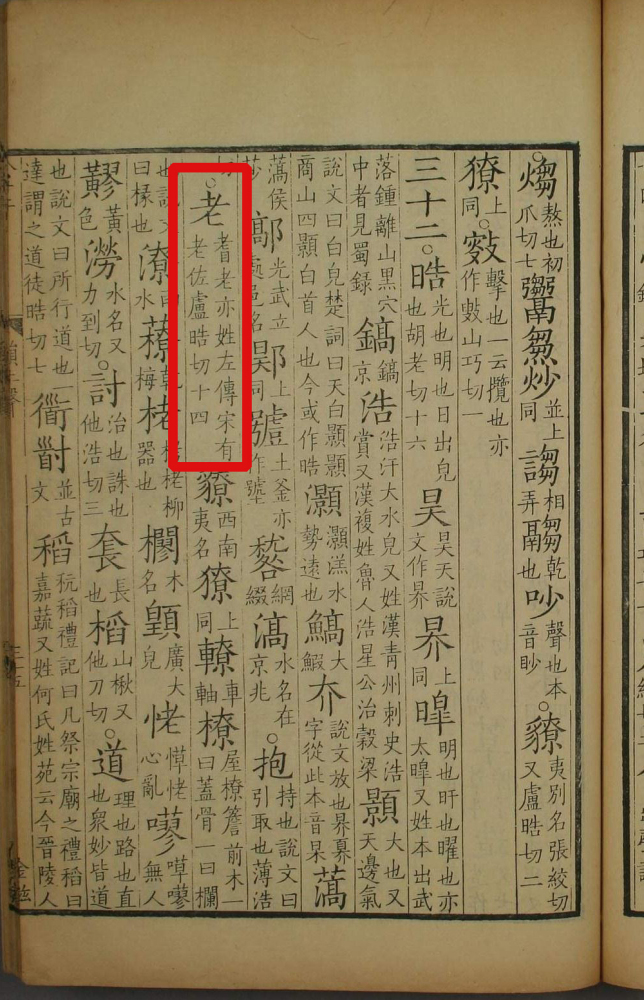 。煼熬也初爪切七䰞炒並上同謅相謅乾弄也吵聲也本音眇。䝤夷別名張絞切又盧晧切二
獠上同。擊也一云攬也亦作㪇山巧切一
三十二。晧光也明也日出皃也胡老切十六昊昊天說文作昦昦上同暤明也旰也曜也亦太暤又姓本出武
落鍾離山黑穴中者見蜀錄鎬鎬京浩浩汗大水皃又姓漢青州刺史浩賞又漢複姓魯人浩星公治穀梁顥大也又天邊氣
說文曰白皃楚詞曰天白顥顥商山四顥白首人也今或作晧灝灝溔水勢遠也鰝大鰕夰說文放也昦奡字從此本音杲薃
薃侯莎鄗光武立處邑名上同土釜亦作網綴滈水名在京兆。抱持也說文曰引取也薄浩
切。老耆老亦姓左傳宋有老佐盧晧切十四䝤西南夷名獠上同轑車軸橑屋橑簷前木一曰蓋骨一曰欄
也說文曰椽也潦水乾梅栳栲栳柳器也木名廣大皃恅愺恅心亂無人
黃色澇水名又力到切。討治也誅也他浩切三套長也山楸又他刀切。道理也路也直也眾妙皆道
也說文曰所行道也一達謂之道徒晧切七衟並古文稻秔稻禮記曰凡祭宗廟之禮稻曰嘉蔬又姓何氏姓苑云今晉陵人